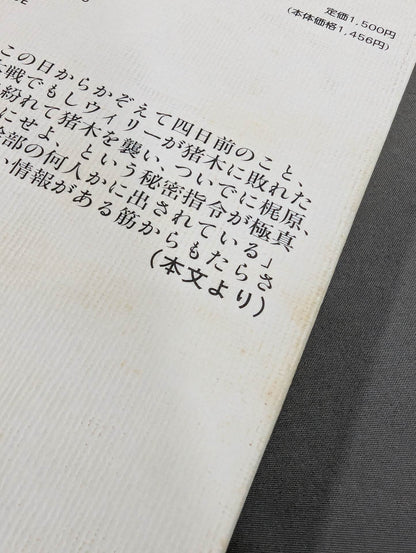 定価1,500円
(本体価格1,456円)
この日からかぞえて四日前のこと、
戦でもしウィリーが猪木に敗れた
紛れて猪木を襲い、ついでに梶原、
にせよ、という秘密指令が極真
幹部の何人かに出されている」
い情報がある筋からもたらさ
(本文より)